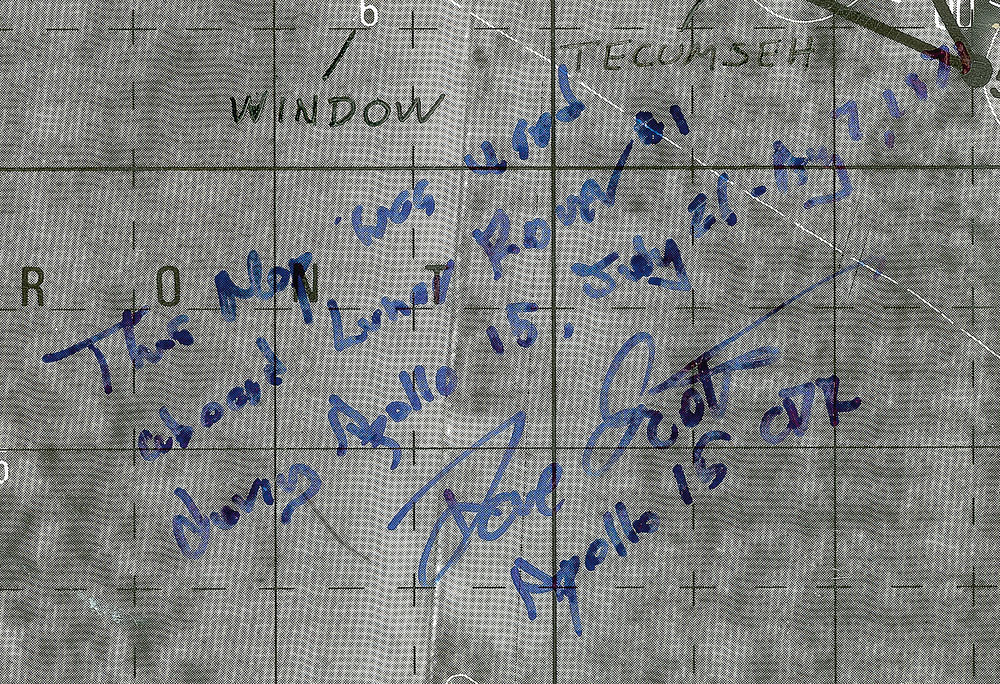 6
TECUMSEH
WINDOW
R O N T
This Map was used
aboard Lunar Rover #1
during Apollo 15. July 26-Aug 7, 1971
Dave Scott
Apollo 15 CDR